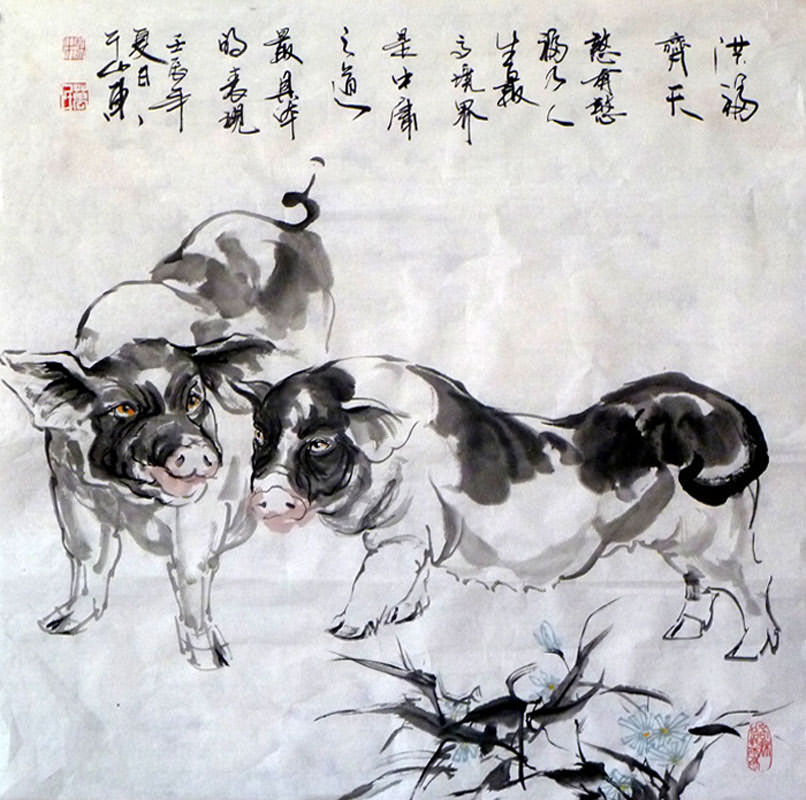 洪福
齊天
憨有憨
福乃人
生最
高境界
是中庸
之道
最具体
的表現
壬辰年
夏月
于山東